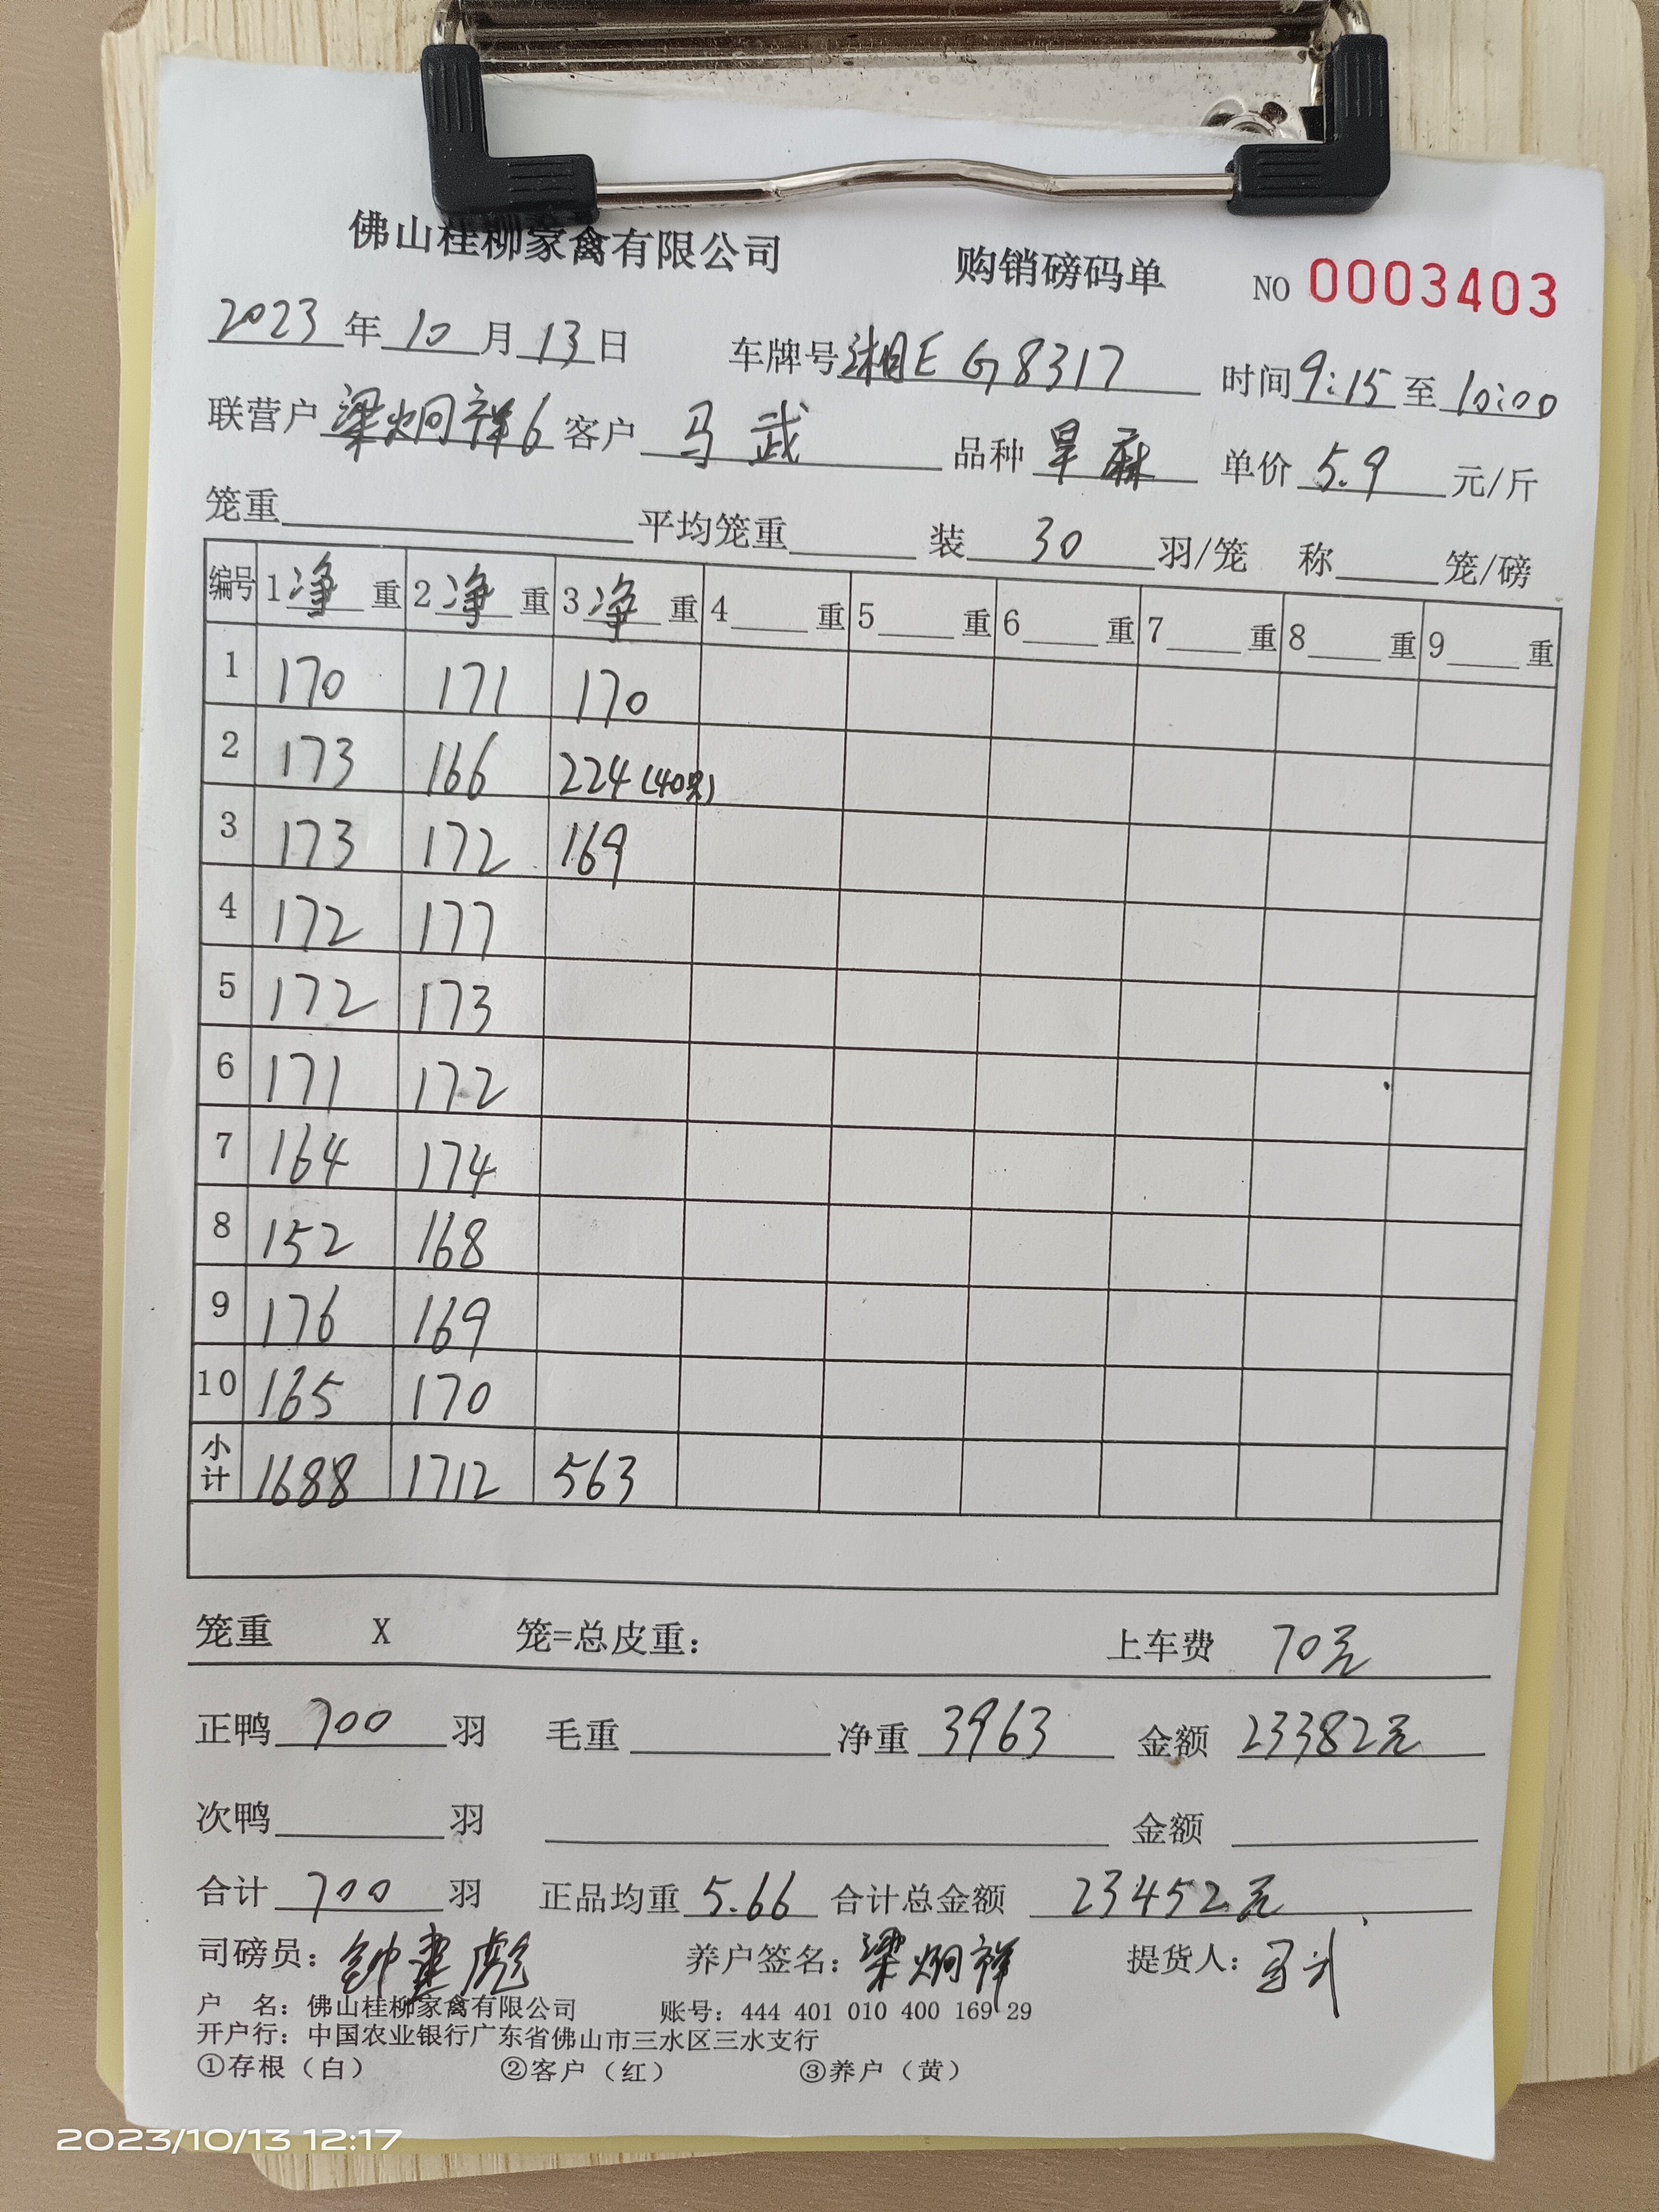 佛山桂柳家禽有限公司 购销磅码单 NO 0003403
2023年10月13日 车牌号湘E G8317 时间9:15至10:00
联营户梁炯祥6 客户 马武 品种 旱麻 单价 5.9 元/斤
笼重 平均笼重 装 30 羽/笼 称 笼/磅
编号 1净重 2净重 3净重 4 重 5 重 6 重 7 重 8 重 9 重
1 170 171 170
2 173 166 224(40只)
3 173 172 169
4 172 177
5 172 173
6 171 172
7 164 174
8 152 168
9 176 169
10 165 170
小计 1688 1712 563
笼重 X 笼=总皮重: 上车费 70元
正鸭 700 羽 毛重 净重 3963 金额 23382元
次鸭 羽 金额
合计 700 羽 正品均重 5.66 合计总金额 23452元
司磅员: 钟建彪 养户签名: 梁炯祥 提货人:
户 名: 佛山桂柳家禽有限公司 账号: 444 401 010 400 169 29
开户行: 中国农业银行广东省佛山市三水区三水支行
①存根（白） ②客户（红） ③养户（黄）
2023/10/13 12:17